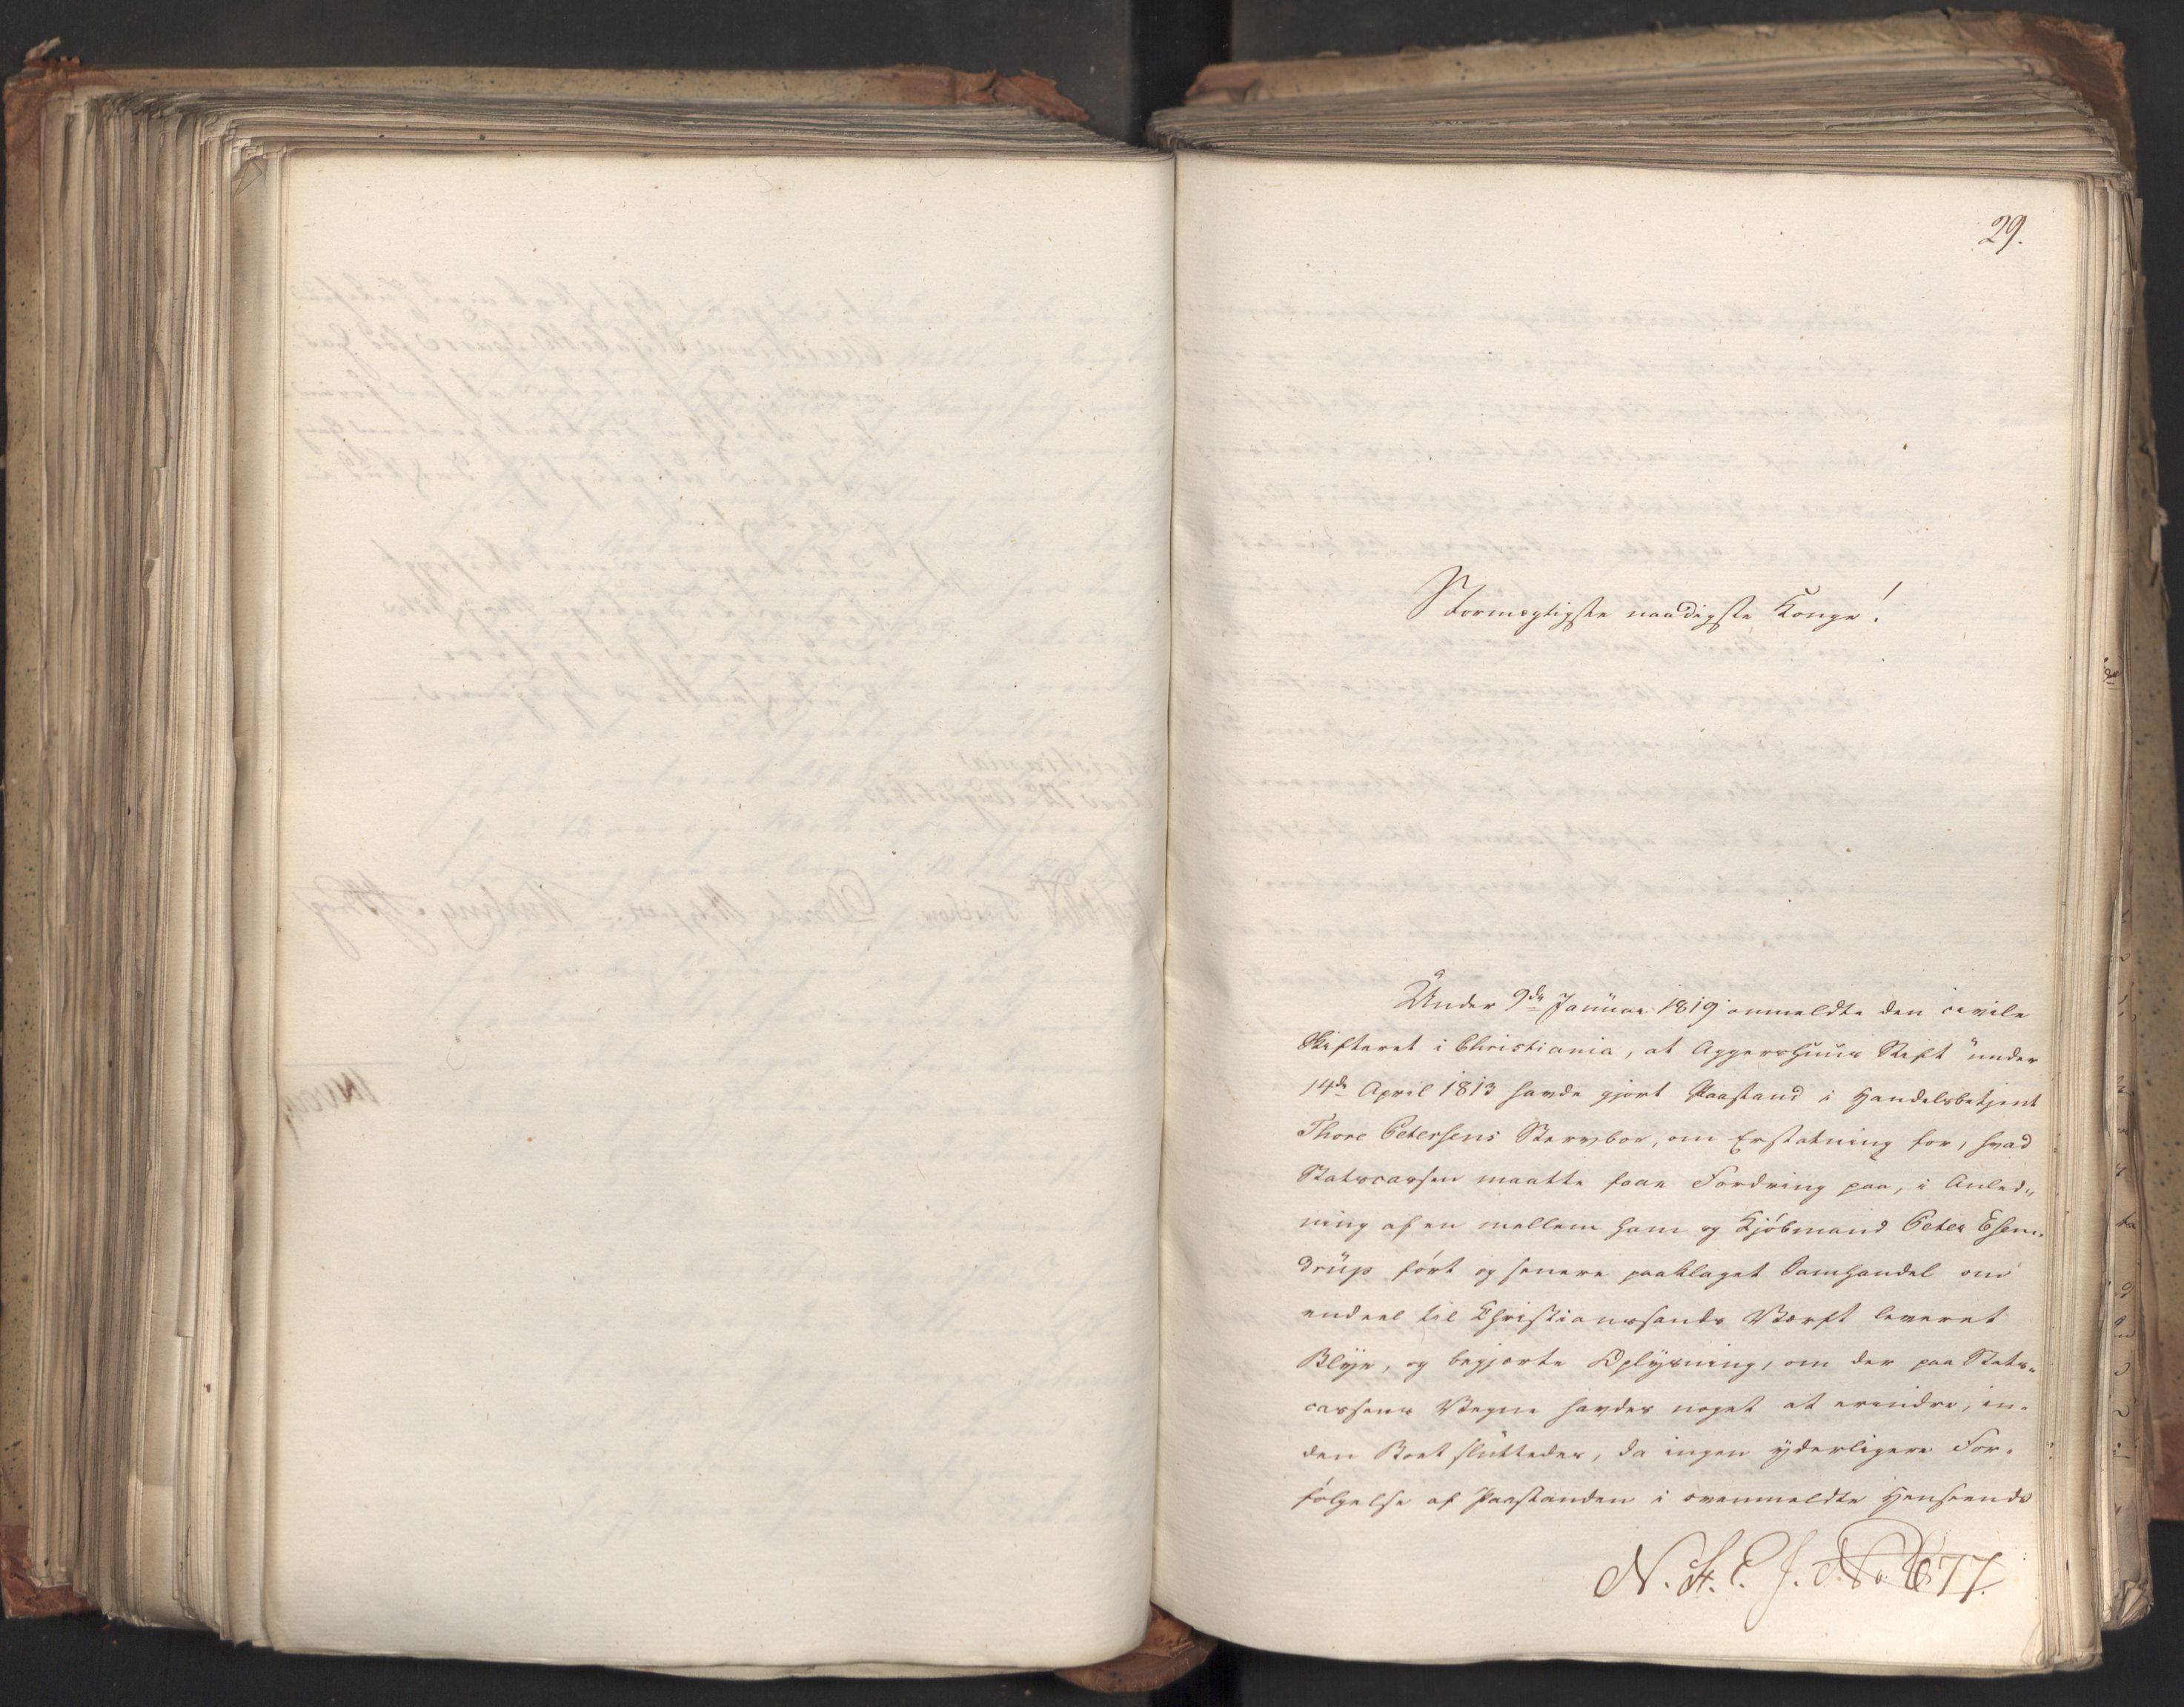 29.
Stormægtigste naadigste Konge!
Under 9de Januar 1819 anmeldte den civile
Skifteret i Christiania, at Aggershuus Stift under
14de April 1813 havde gjort Paastand i Handelsbetjent
Thore Petersens Stervboe, om Erstatning for, hvad
Statscassen maatte faae Fordring paa, i Anled-
ning af en mellem ham og Kjöbmand Peter Esen-
drüp fört og senere paaklaget Samhandel om
endeel til Christianssands Værft leveret
Blye, og begjærte Oplysning, om der paa Stats-
cassens Vegne havdes noget at erindre, in-
den Boet sluttedes, da ingen yderligere For-
fölgelse af Paastanden i ovenmeldte Henseende
N. St. C. J. No 677.